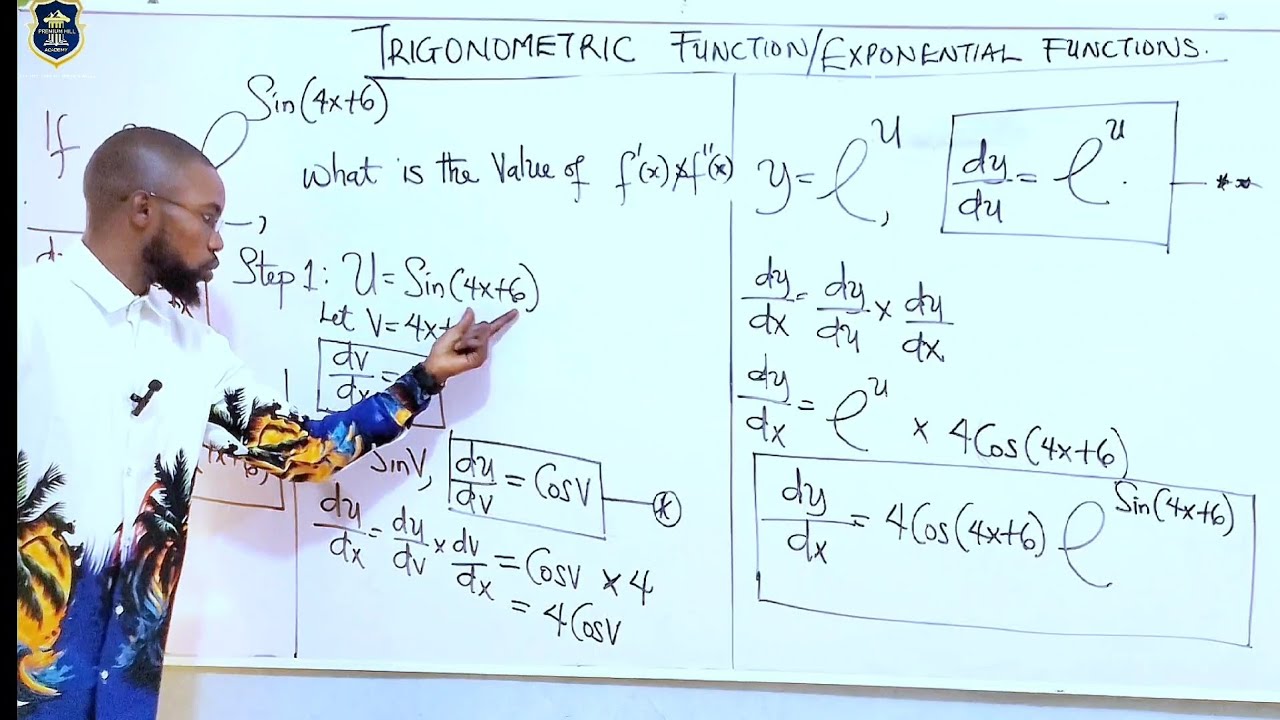 PREMIUM HILL
ACADEMY
TRIGONOMETRIC FUNCTION/EXPONENTIAL FUNCTIONS.
If
e^Sin(4x+6)
What is the Value of f'(x) & f''(x)
Step 1: U = Sin(4x+6)
Let V = 4x+
dv/dx =
SinV, du/dv = CosV — *
du/dx = du/dv × dv/dx = CosV × 4
= 4CosV
y = e^u, dy/du = e^u. — **
dy/dx = dy/du × du/dx
dy/dx = e^u × 4Cos(4x+6)
dy/dx = 4Cos(4x+6) e^Sin(4x+6)